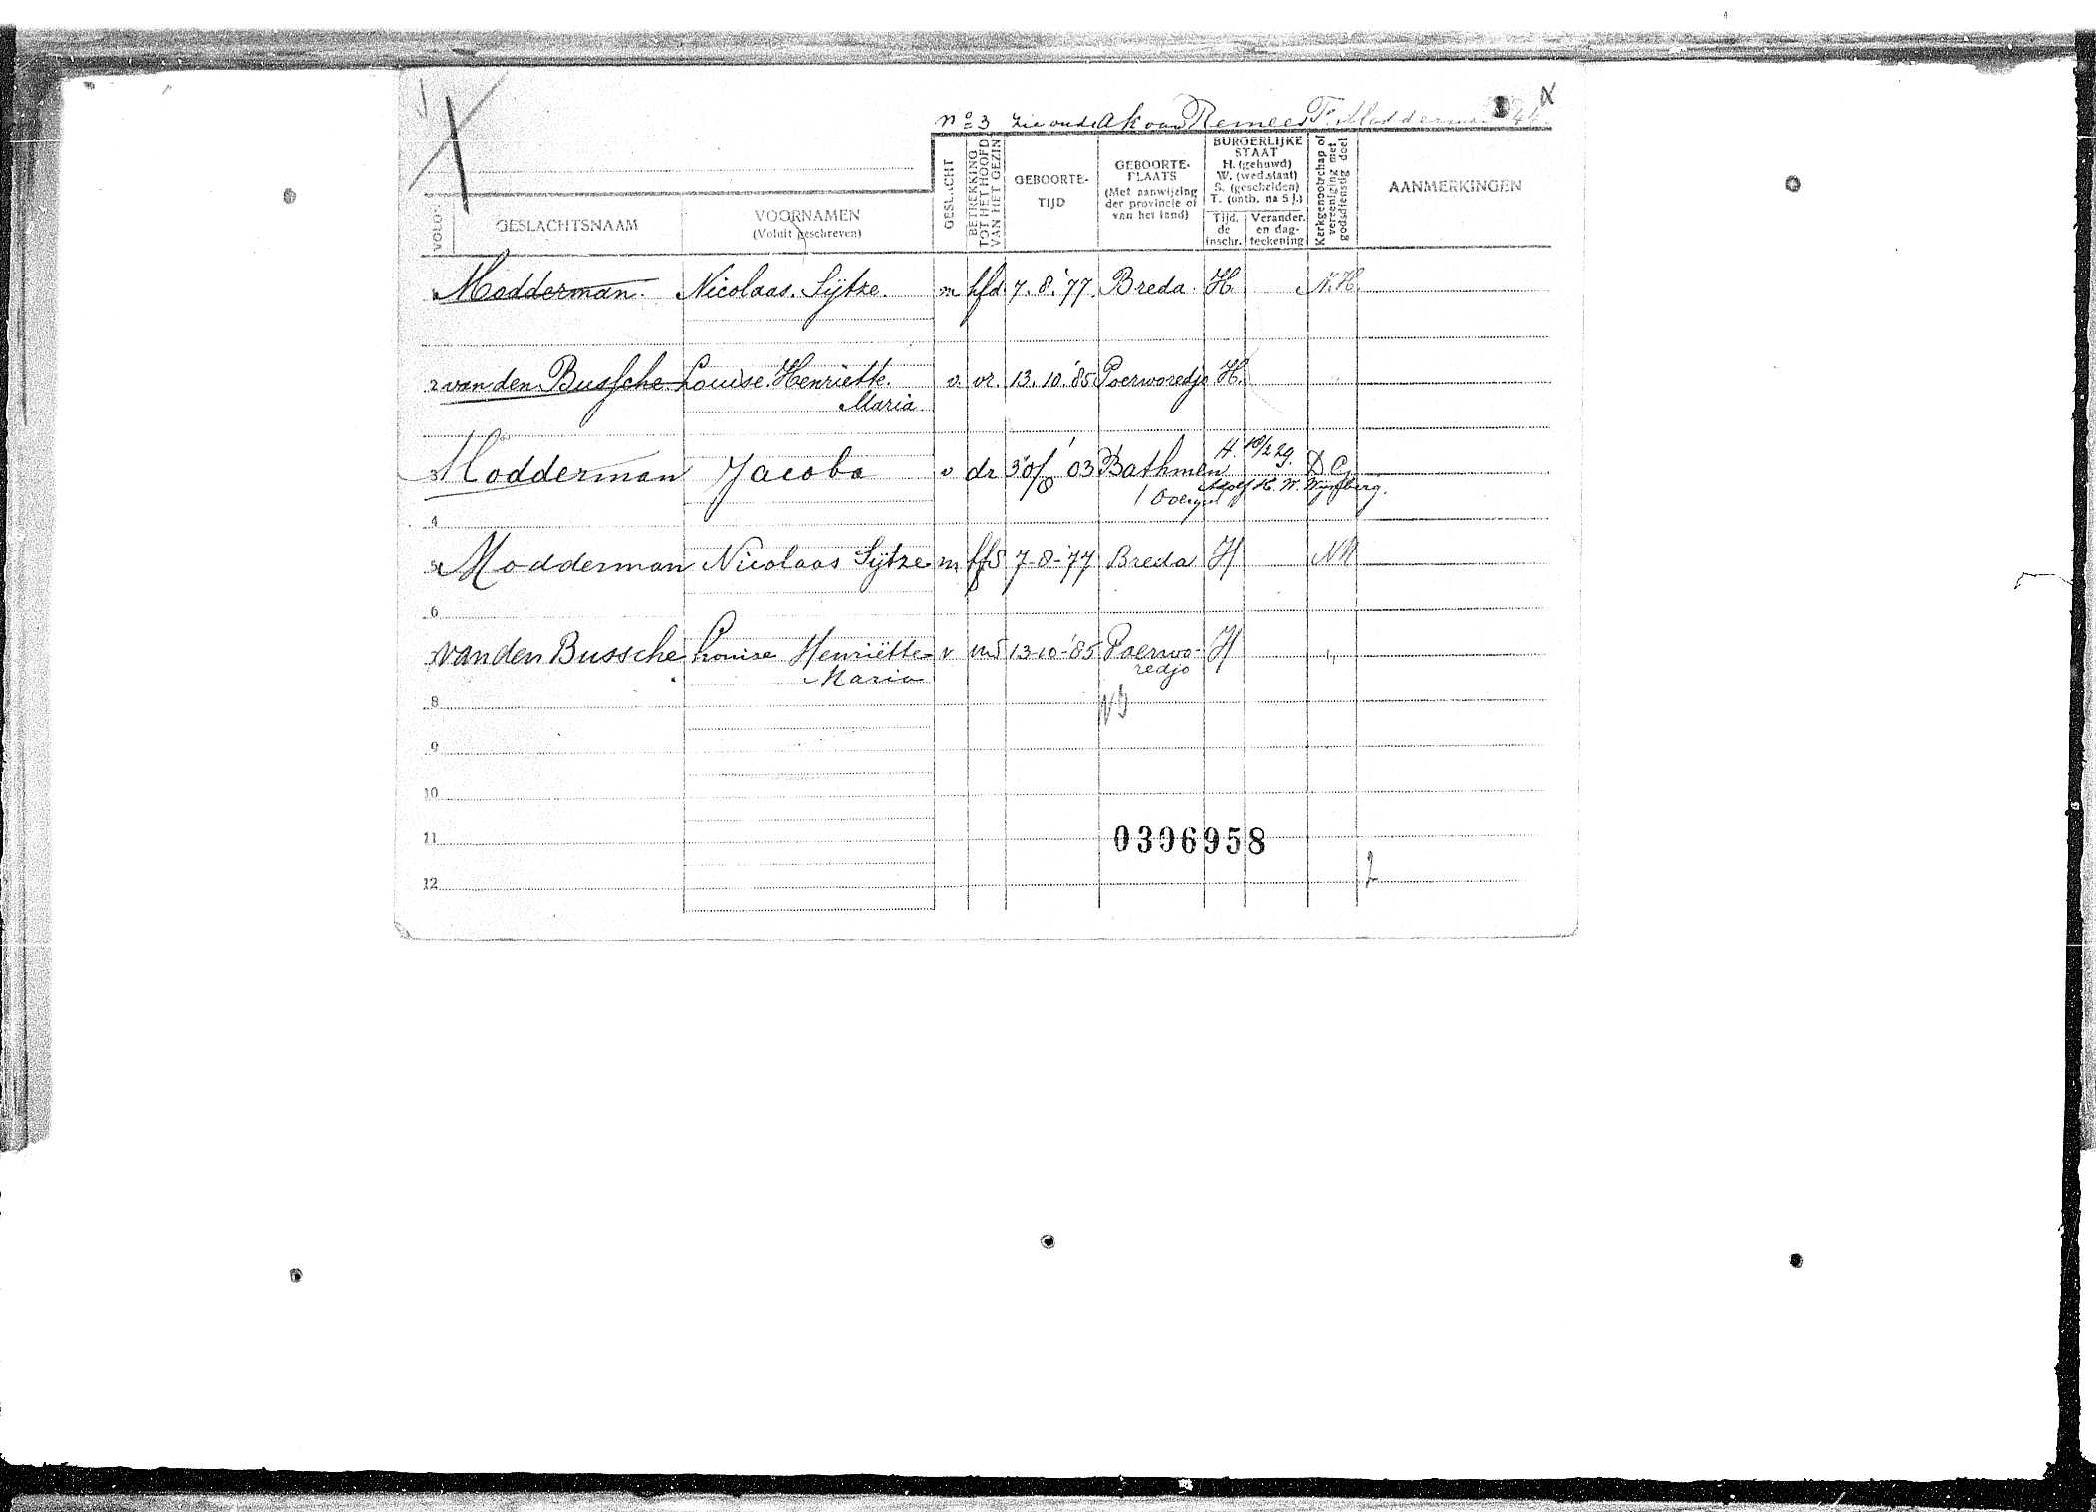 No 3 zie oude AK van Remees F. Modderman
VOLGN.
GESLACHTSNAAM
VOORNAMEN
(Voluit geschreven)
GESLACHT
BETREKKING TOT HET HOOFD VAN HET GEZIN
GEBOORTE-
TIJD
GEBOORTE-
PLAATS
(Met aanwijzing
der provincie of
van het land)
BURGERLIJKE
STAAT
H. (gehuwd)
W. (wed.staat)
S. (gescheiden)
T. (ontb. na 5 j.)
Tijd.
de
inschr.
Verander.
en dag-
teekening
Kerkgenootschap of
vereeniging met
godsdienstig doel
AANMERKINGEN
Modderman. Nicolaas. Sijtze. m hfd. 7.8.'77. Breda. H. N.H.
2 van den Bussche Louise. Henriette. v. vr. 13.10.'85 Poerworedjo H.
Maria
3 Modderman Jacoba v dr 30/8 '03 Bathmen H. 2 29. D G
H. W. Wijnberg.
4
5 Modderman Nicolaas Sijtze m hfd 7-8-'77 Breda H NH
6
van den Bussche Louise Henriëtte v 13-10-'85 Poerwo- H "
Maria redjo
8
9
10
11
0306958
12
2